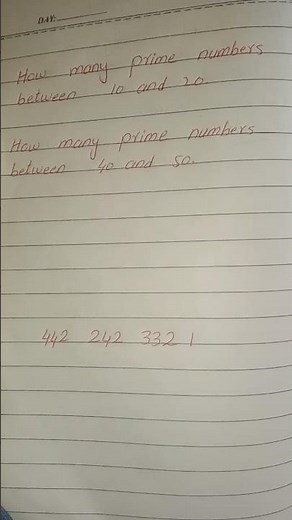 DAY:
How many prime numbers
between 10 and 20.
How many prime numbers
between 40 and 50.
442 242 332 1